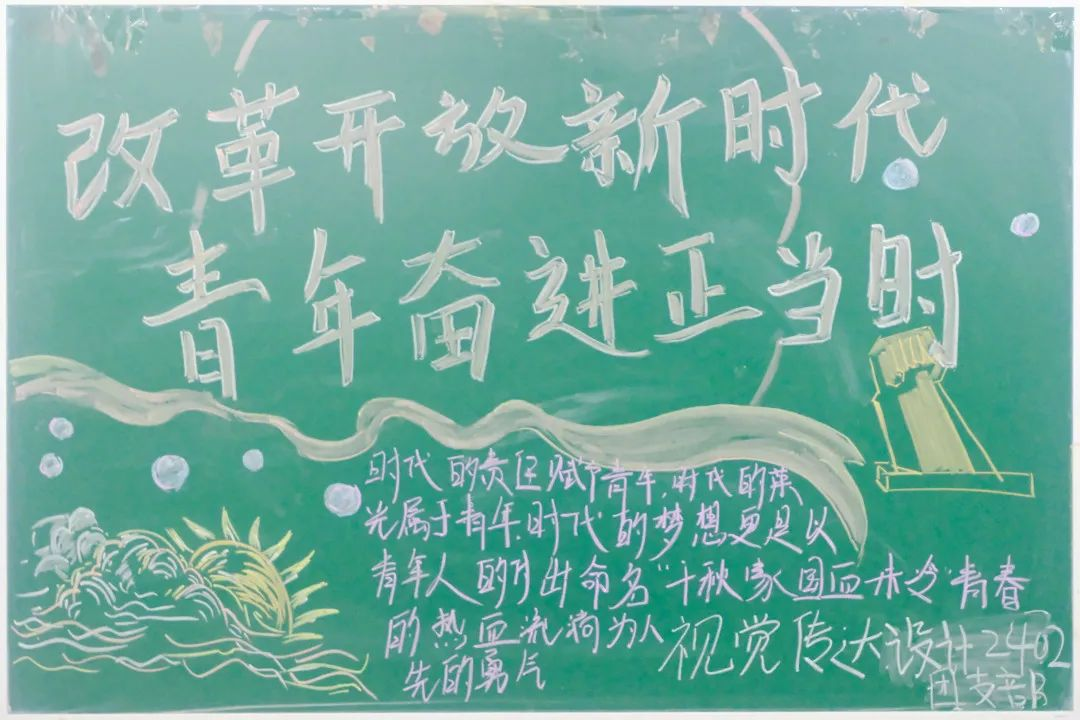 改革开放新时代
青年奋进正当时
时代的责任赋予青年,时代的荣
光属于青年,时代的梦想更是以
青年人的付出命名"十秋家国血未冷"青春
的热血流淌为人
先的勇气
视觉传达设计2402
团支部